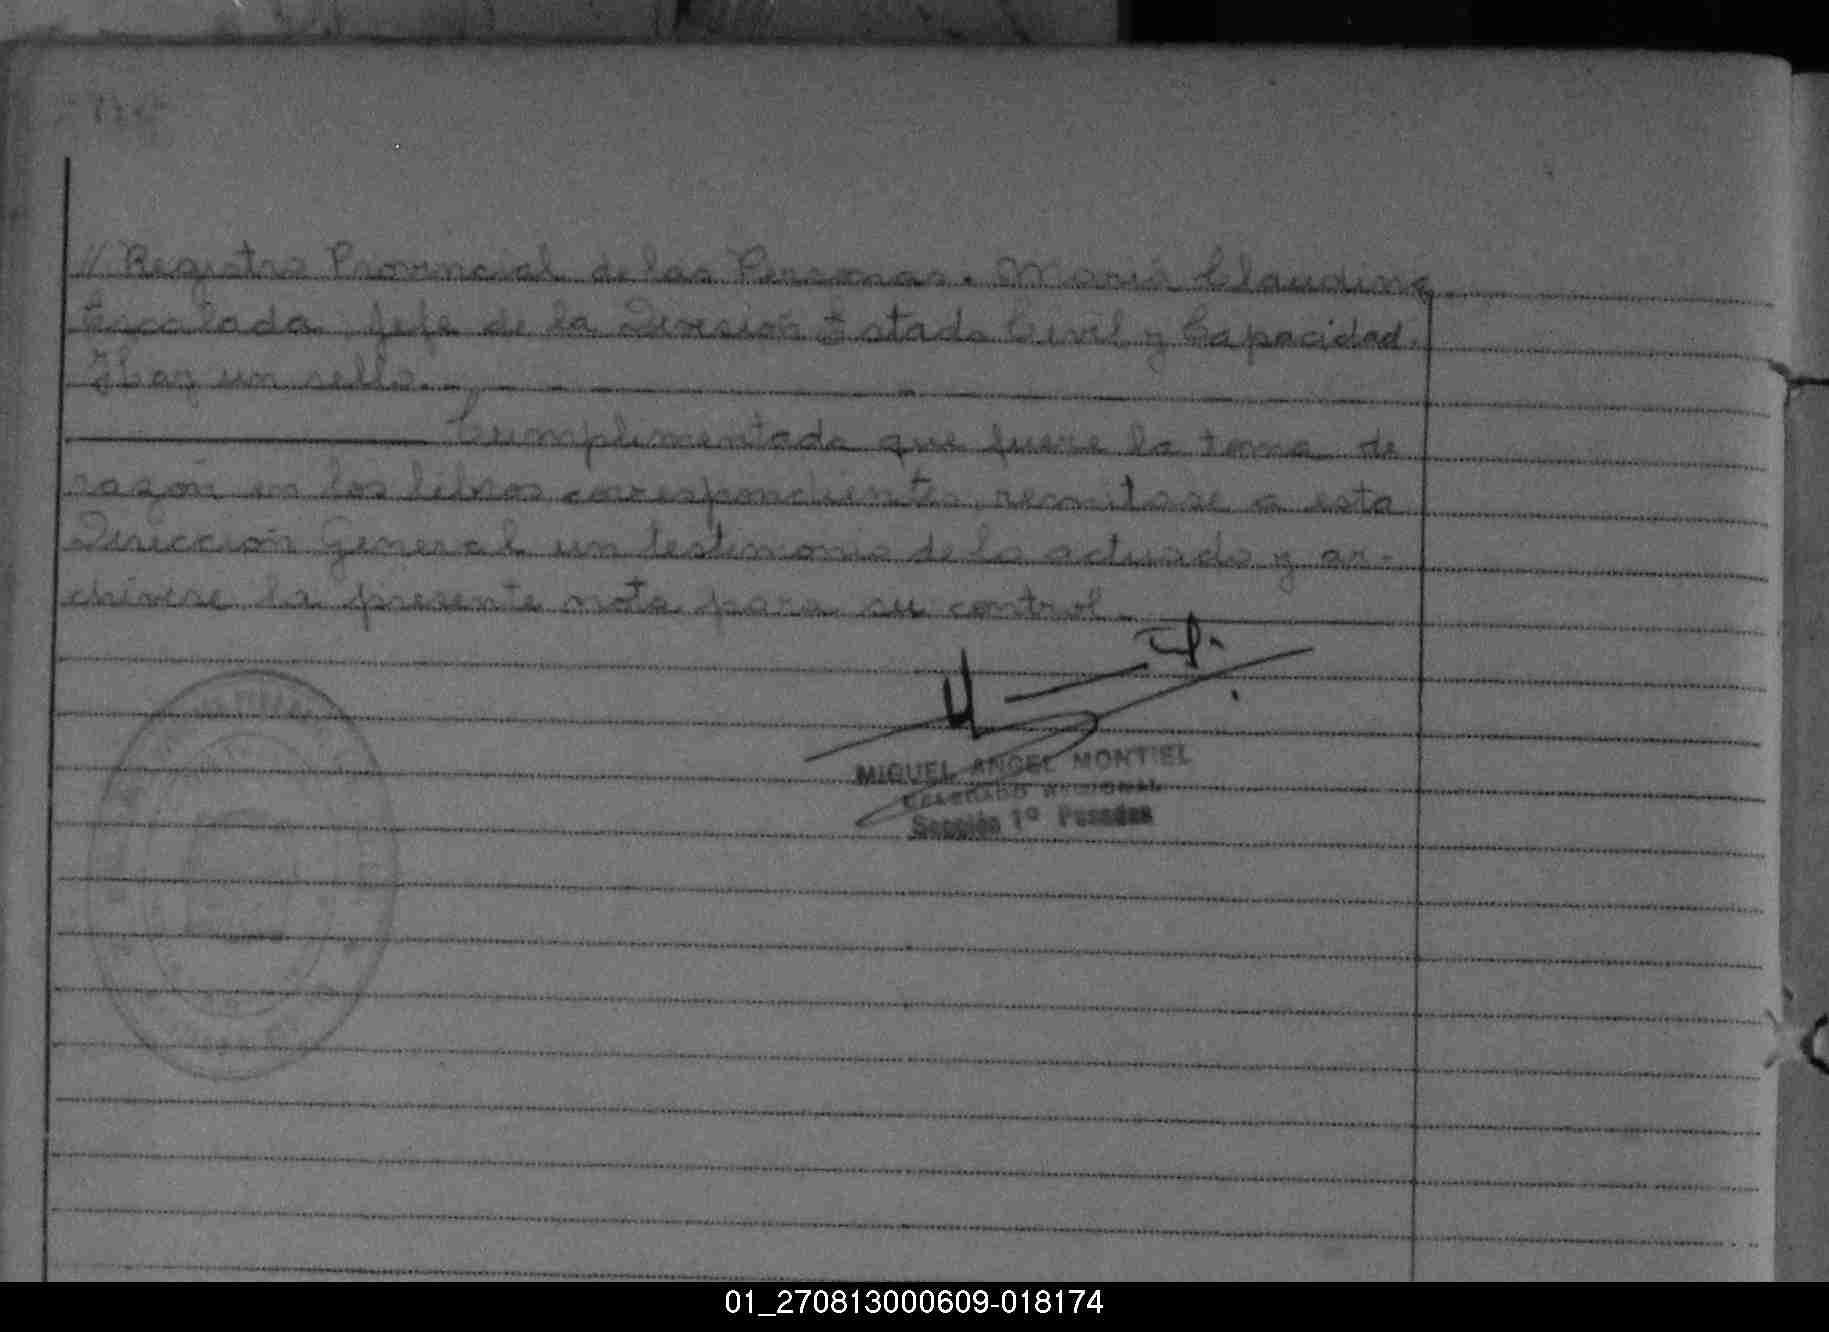 // Registro Provincial de las Personas. Maria Claudina
Escalada, Jefe de la División Estado Civil y Capacidad.
Hay un sello.
Cumplimentado que fuere la toma de
razón en los libros correspondientes, remitase a esta
Dirección General un testimonio de lo actuado y ar-
chivese la presente nota para su control.
MIGUEL ANGEL MONTIEL
DELEGADO REGIONAL
Sección 1º Posadas
01_270813000609-018174